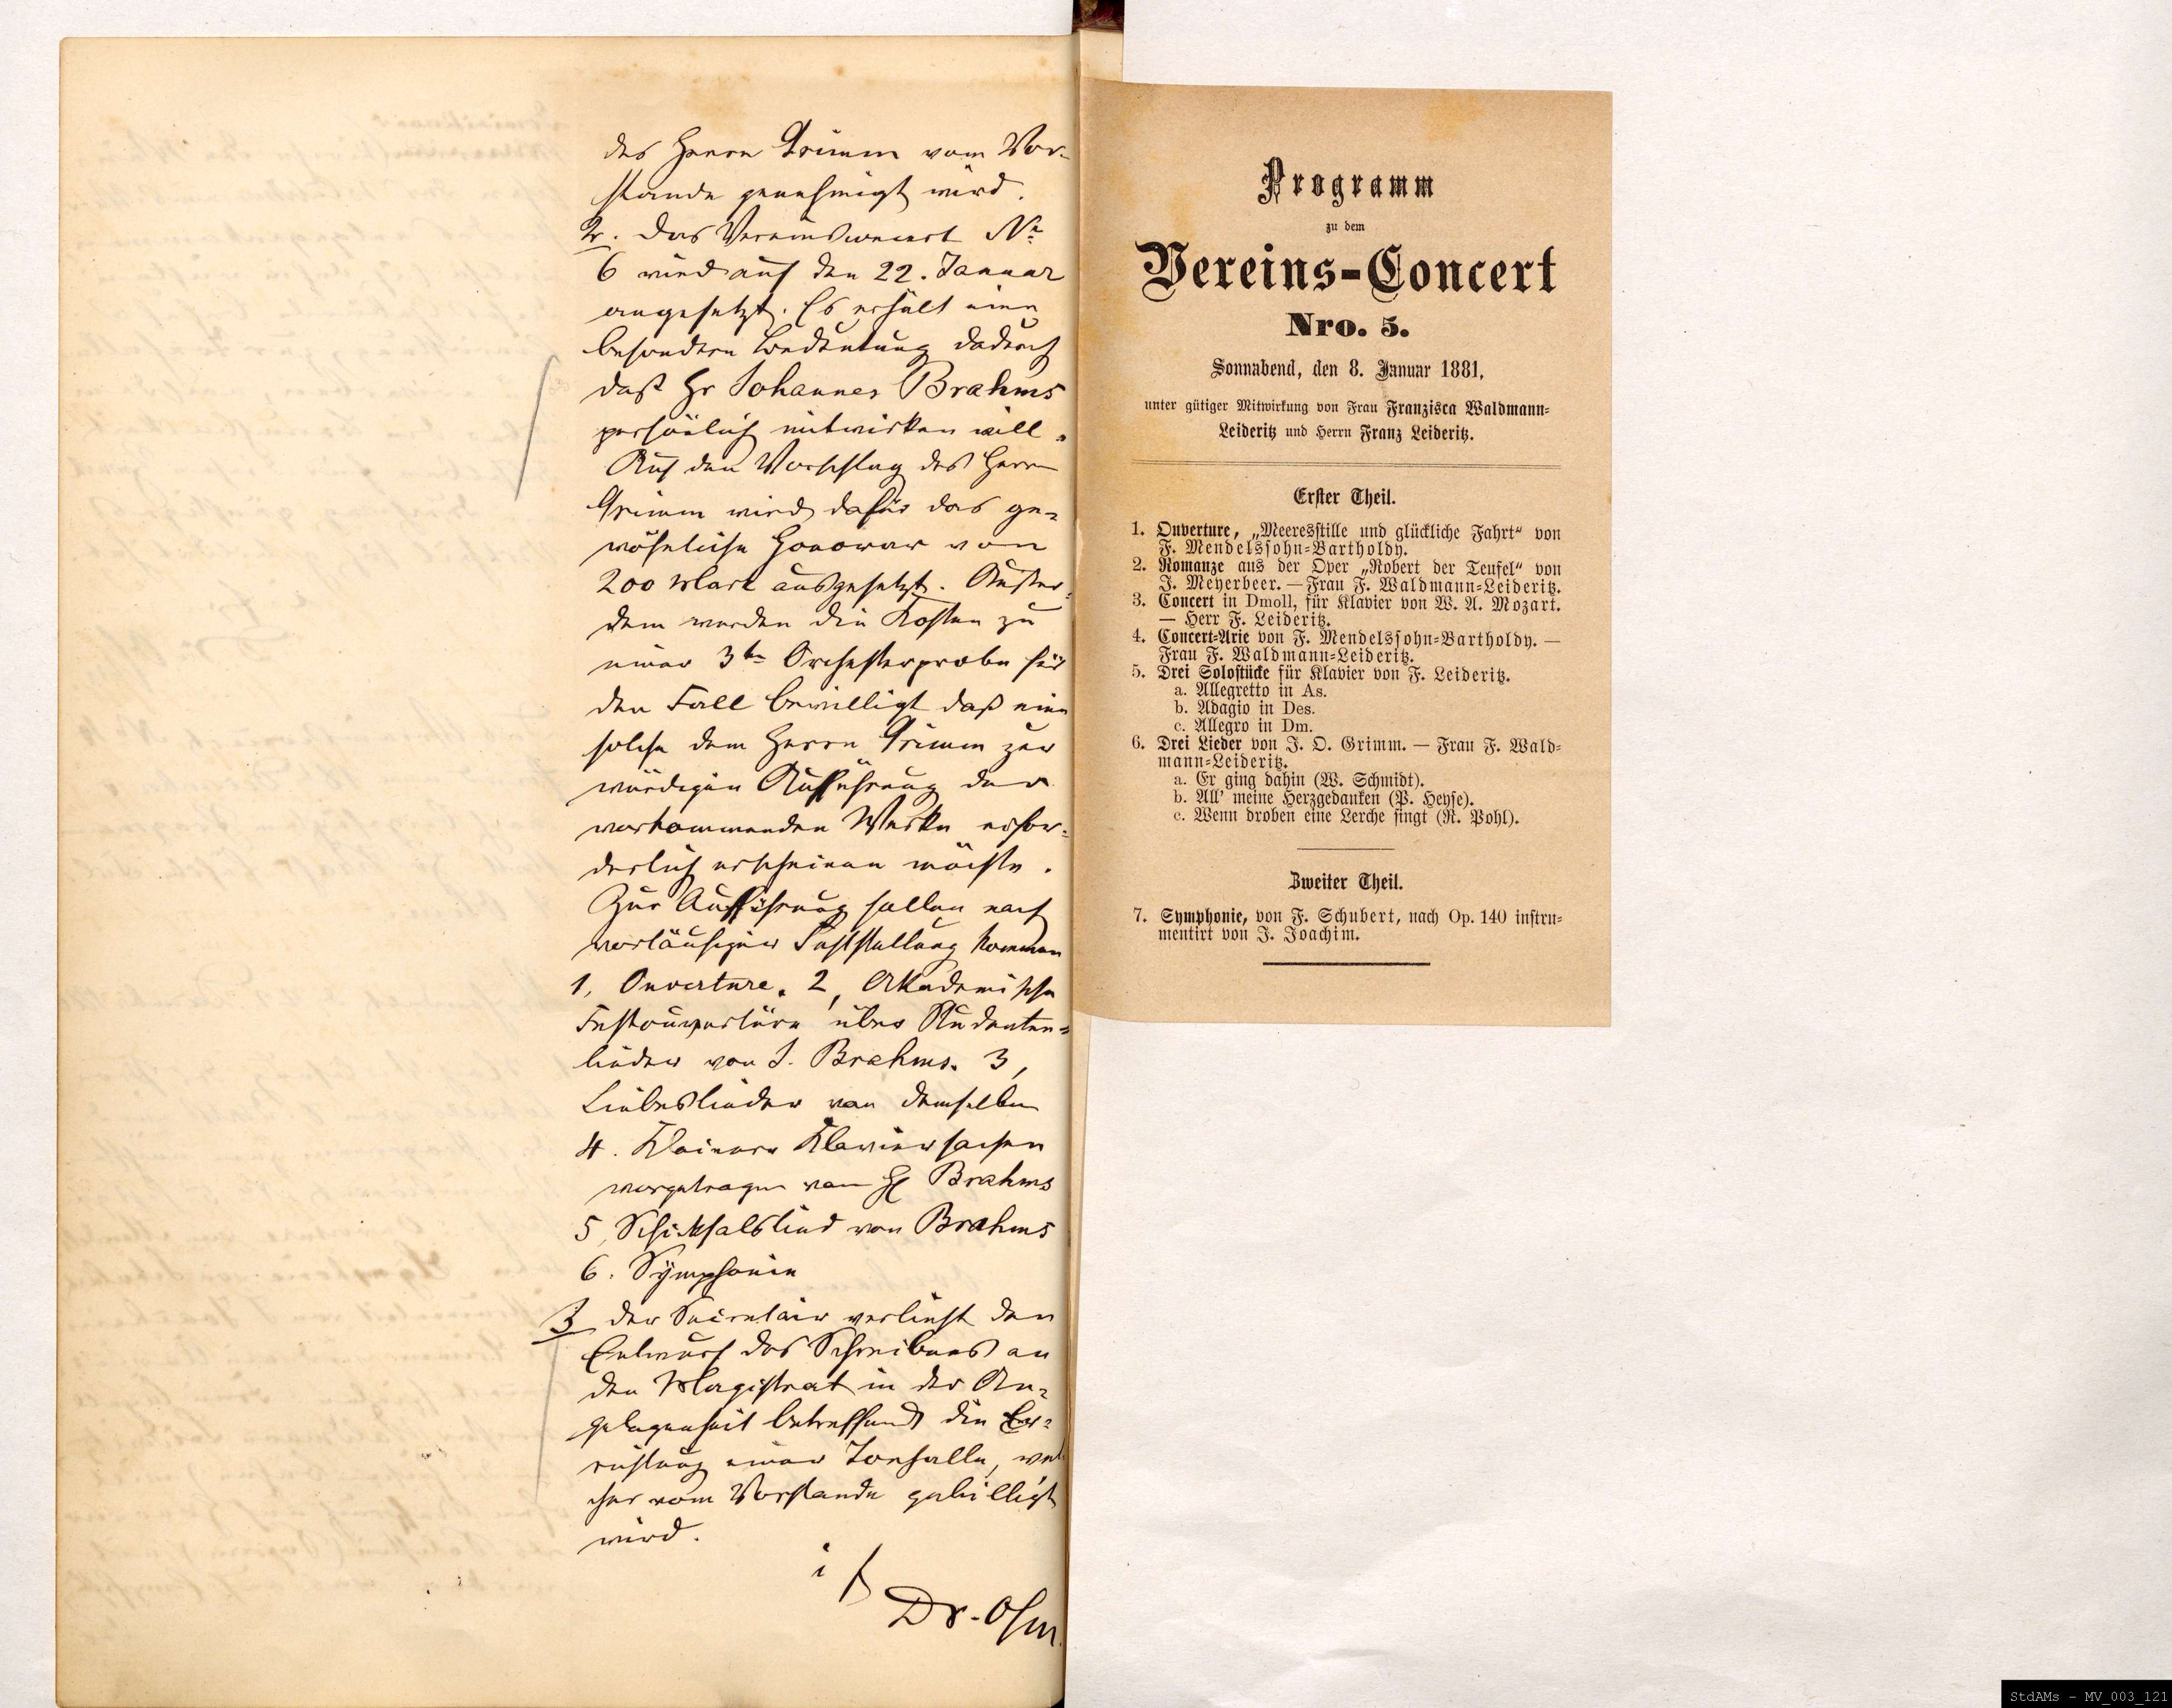 des Herrn Grimm vom Vor-
stande genehmigt wird.
2. Das Vereinsconcert No
6 wird auf den 22. Januar
angesetzt. Es erhält eine
besondere Bedeutung dadurch
daß Hr Johannes Brahms
persönlich mitwirken will.
Auf den Vorschlag des Herrn
Grimm wird dafür das ge-
wöhnliche Honorar von
200 Mark ausgesetzt. Außer-
dem werden die Kosten zu
einer 3ten Orchesterprobe für
den Fall bewilligt daß eine
solche dem Herrn Grimm zur
würdigen Aufführung der
vorkommenden Werke erfor-
derlich erscheinen möchte.
Zur Aufführung sollen nach
vorläufiger Feststellung kommen
1, Ouverture. 2, Akademische
Festouvertüre über Studenten-
lieder von J. Brahms. 3,
Liebeslieder von demselben
4. Kleinere Klaviersachen
vorgetragen von H Brahms
5, Schicksalslied von Brahms
6. Symphonie
3 der Secretair verliest den
Entwurf des Schreibens an
den Magistrat in der An-
gelegenheit betreffend die Er-
richtung einer Tonhalle, wel
cher vom Vorstande gebilligt
wird.
Dr.
Programm
zu dem
Vereins-Concert
Nro. 5.
Sonnabend, den 8. Januar 1881,
unter gütiger Mitwirkung von Frau Franzisca Waldmann-
Leideritz und Herrn Franz Leideritz.
Erster Theil.
1. Ouverture, „Meeresstille und glückliche Fahrt“ von
F. Mendelssohn-Bartholdy.
2. Romanze aus der Oper „Robert der Teufel“ von
J. Meyerbeer. — Frau F. Waldmann-Leideritz.
3. Concert in Dmoll, für Klavier von W. A. Mozart.
— Herr F. Leideritz.
4. Concert-Arie von F. Mendelssohn-Bartholdy. —
Frau F. Waldmann-Leideritz.
5. Drei Solostücke für Klavier von F. Leideritz.
a. Allegretto in As.
b. Adagio in Des.
c. Allegro in Dm.
6. Drei Lieder von J. O. Grimm. — Frau F. Wald-
mann-Leideritz.
a. Er ging dahin (W. Schmidt).
b. All' meine Herzgedanken (P. Heyse).
c. Wenn droben eine Lerche singt (R. Pohl).
Zweiter Theil.
7. Symphonie, von F. Schubert, nach Op. 140 instru-
mentirt von J. Joachim.
StdAMs - MV_003_121